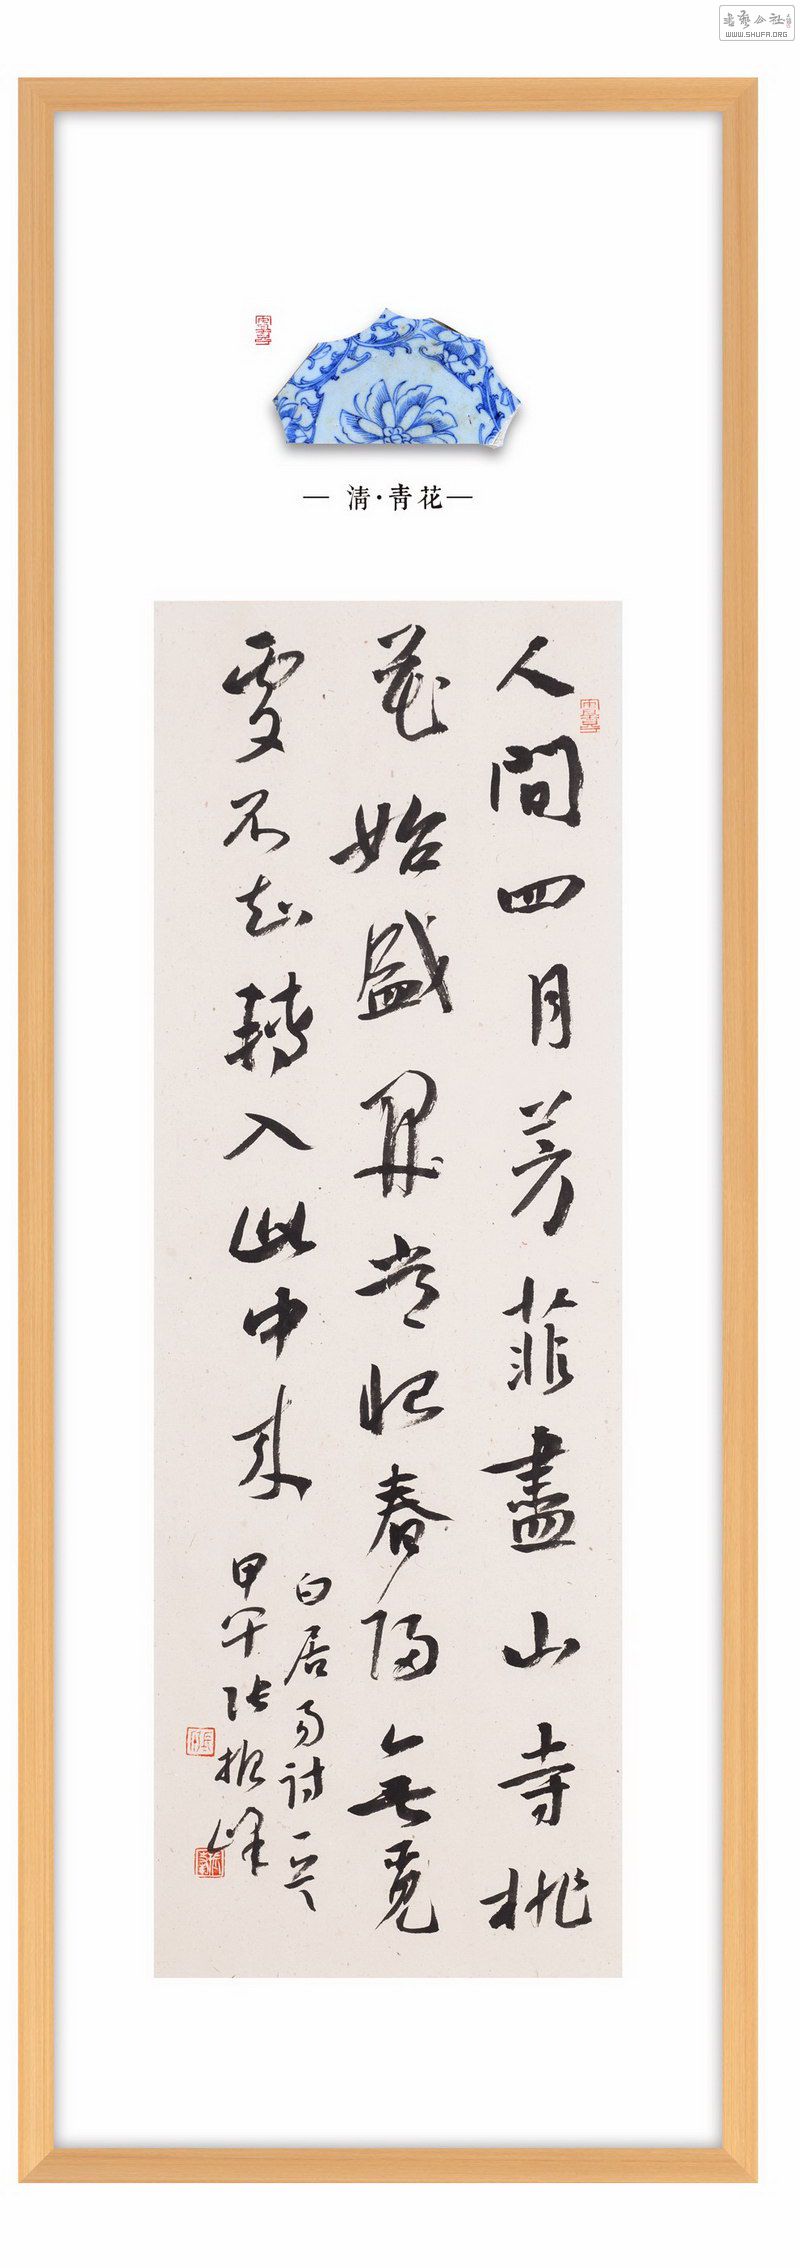 书艺公社
WWW.SHUFA.ORG
— 清·青花—
人間四月芳菲盡山寺桃
花始盛開常恨春歸無覓
處不知轉入此中來
白居易詩一首
甲午張振峰